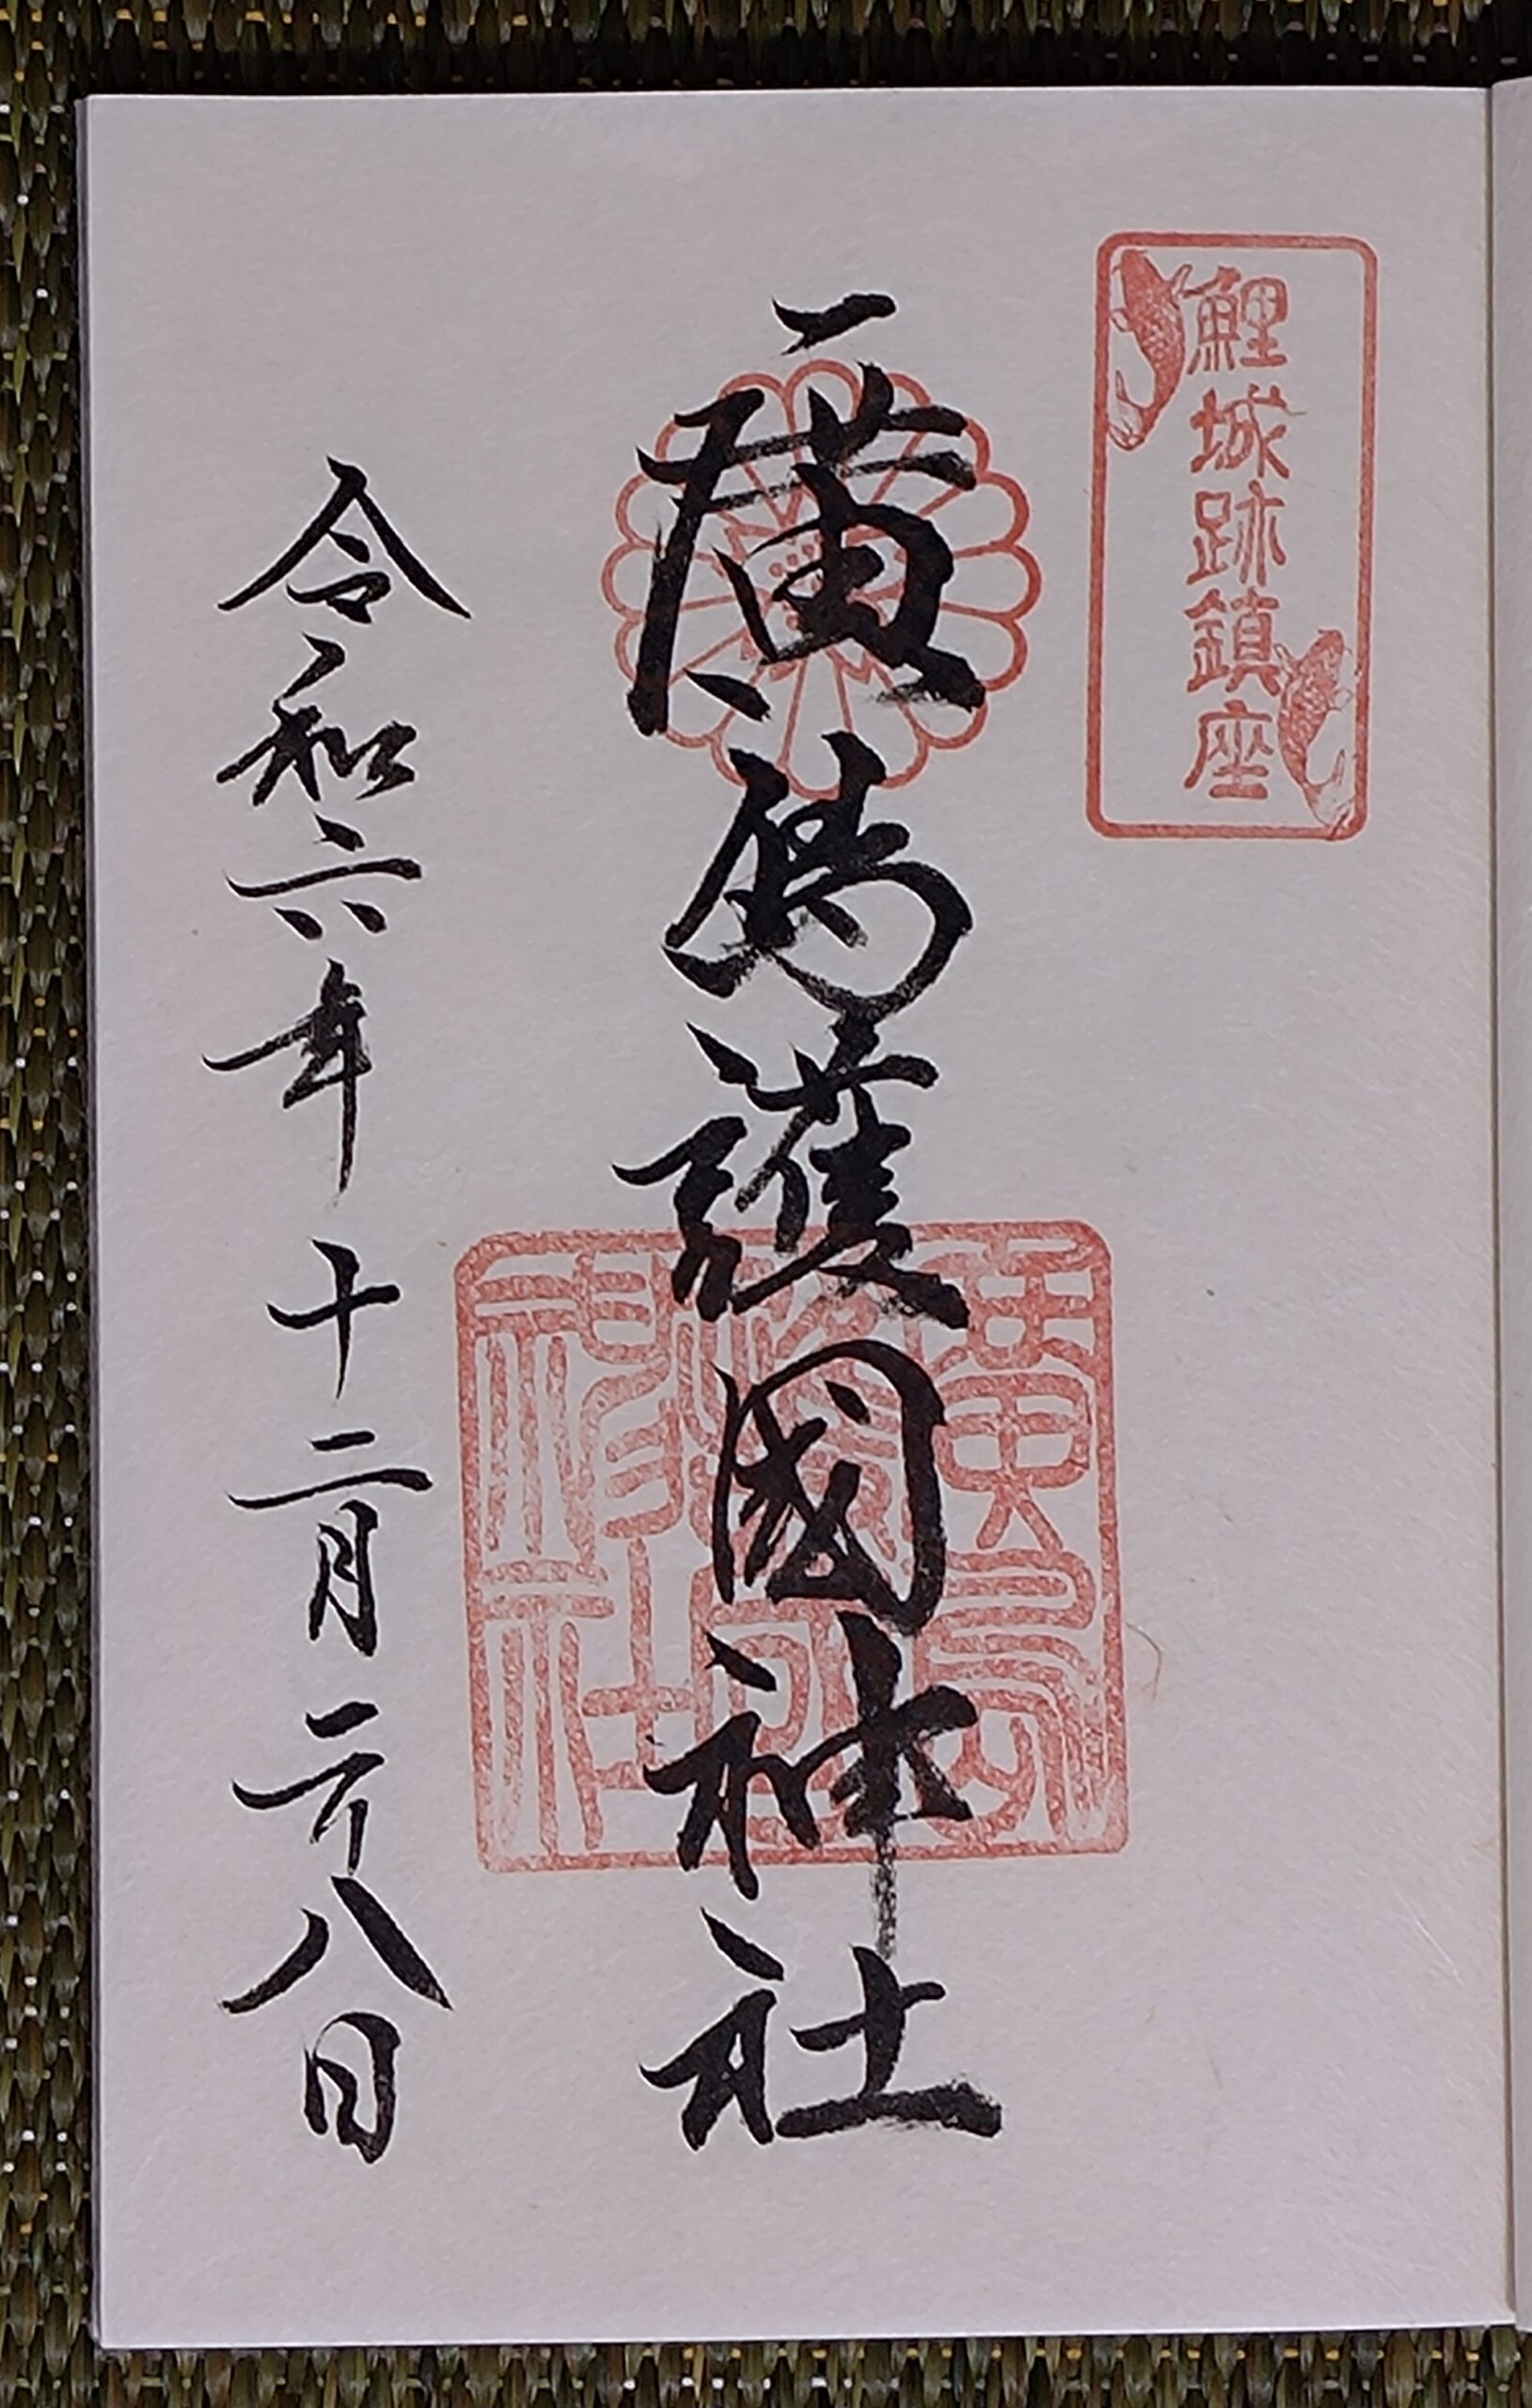 鯉城跡鎮座
廣島護國神社
廣島護國神社
令和六年十二月二十八日